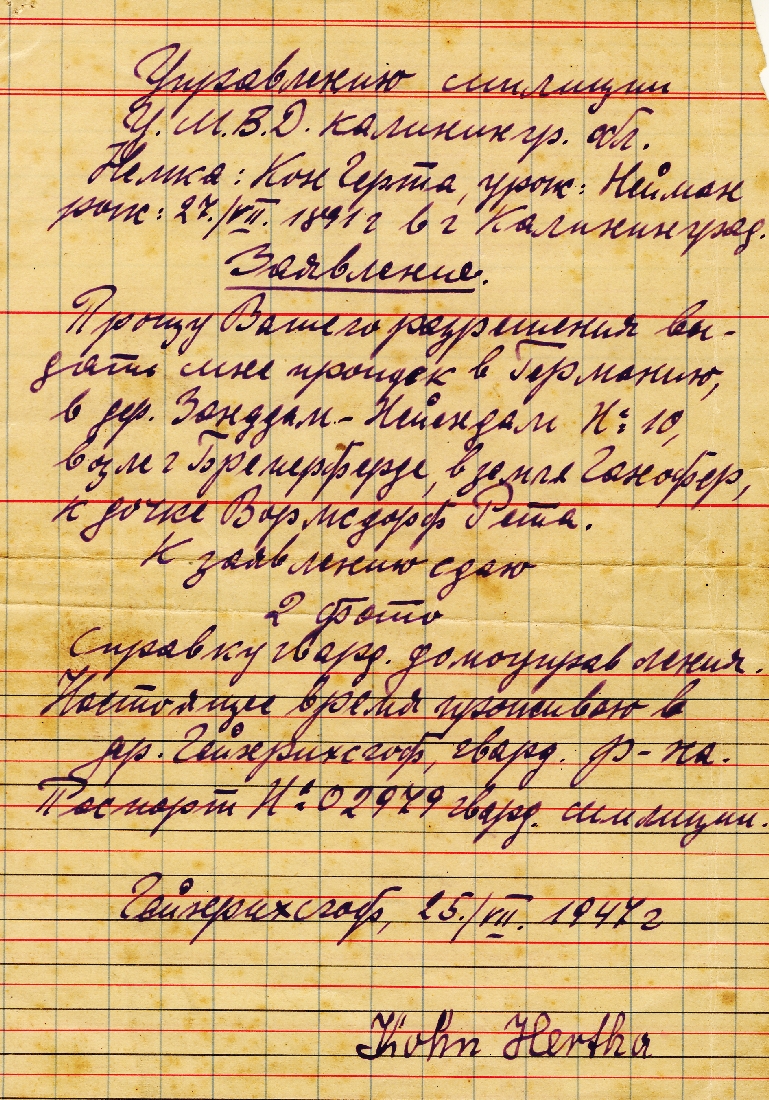 Управлению милиции
У.М.В.Д. калинингр. обл.
Немка: Кон Герта, урож: Нейман
рож: 27./VII. 1891 г в г Калининград.
Заявление.
Прошу Вашего разрешения вы-
дать мне проидек в Германию,
в дер. Занддам - Нейендам №: 10,
возле г Бремерферде, в земле Ганофер,
к дочке Вормсдорф Рета.
К заявлению сдаю
2 фото
справку гвард. домоуправления.
Настоящее время проживаю в
др. Гейнрихсгоф, гвард. р-на.
Паспорт №: 02979 гвард. милиции.
Гейнрихсгоф, 25./VII. 1947 г
Kohn Hertha